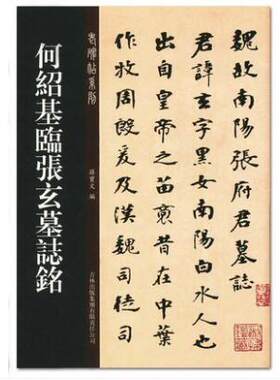 魏故南陽張府君墓誌
君諱玄字黑女南陽白水人也
出自皇帝之苗裔昔在中葉
作牧周殷爰及漢魏司徒司
老碑帖系列
何紹基臨張玄墓誌銘
孫寶文 編
吉林出版集團有限責任公司